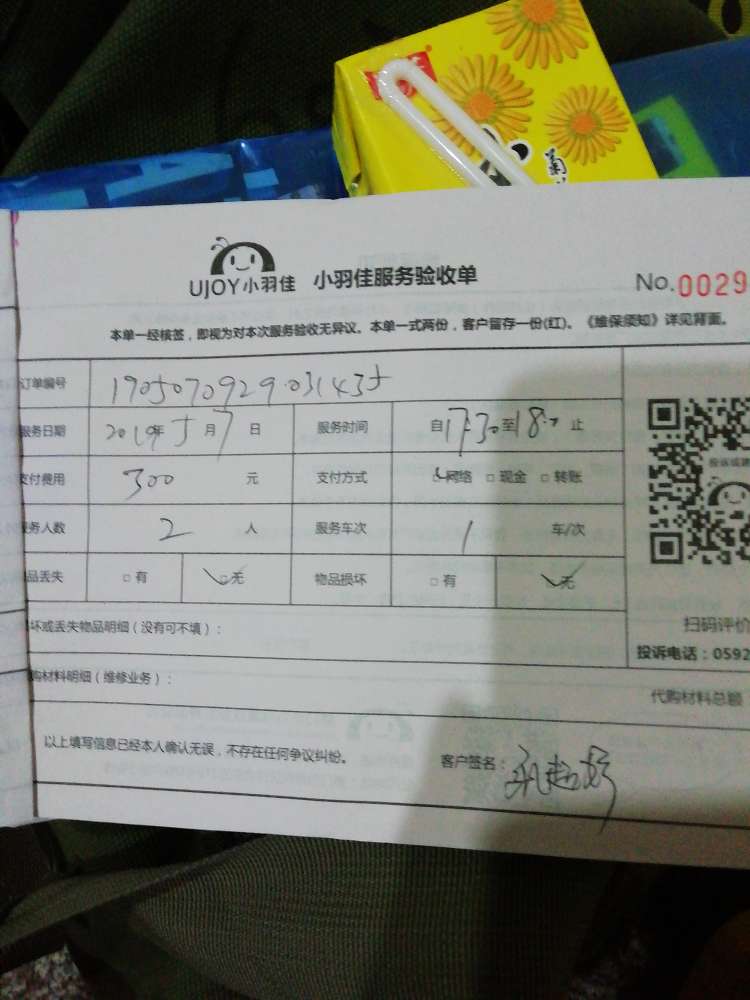 菊
UJOY小羽佳 小羽佳服务验收单 No.0029
本单一经核签，即视为对本次服务验收无异议。本单一式两份，客户留存一份(红)。《维保须知》详见背面。
订单编号 1905070929031435
服务日期 2019年5月7日 服务时间 自17:30至18:0止
支付费用 300 元 支付方式 网络 现金 转账
务人数 2 人 服务车次 1 车/次
品丢失 有 无 物品损坏 有 无
坏或丢失物品明细（没有可不填）：
扫码评价
投诉电话：0592
购材料明细（维修业务）：
代购材料总额
以上填写信息已经本人确认无误，不存在任何争议纠纷。 客户签名：